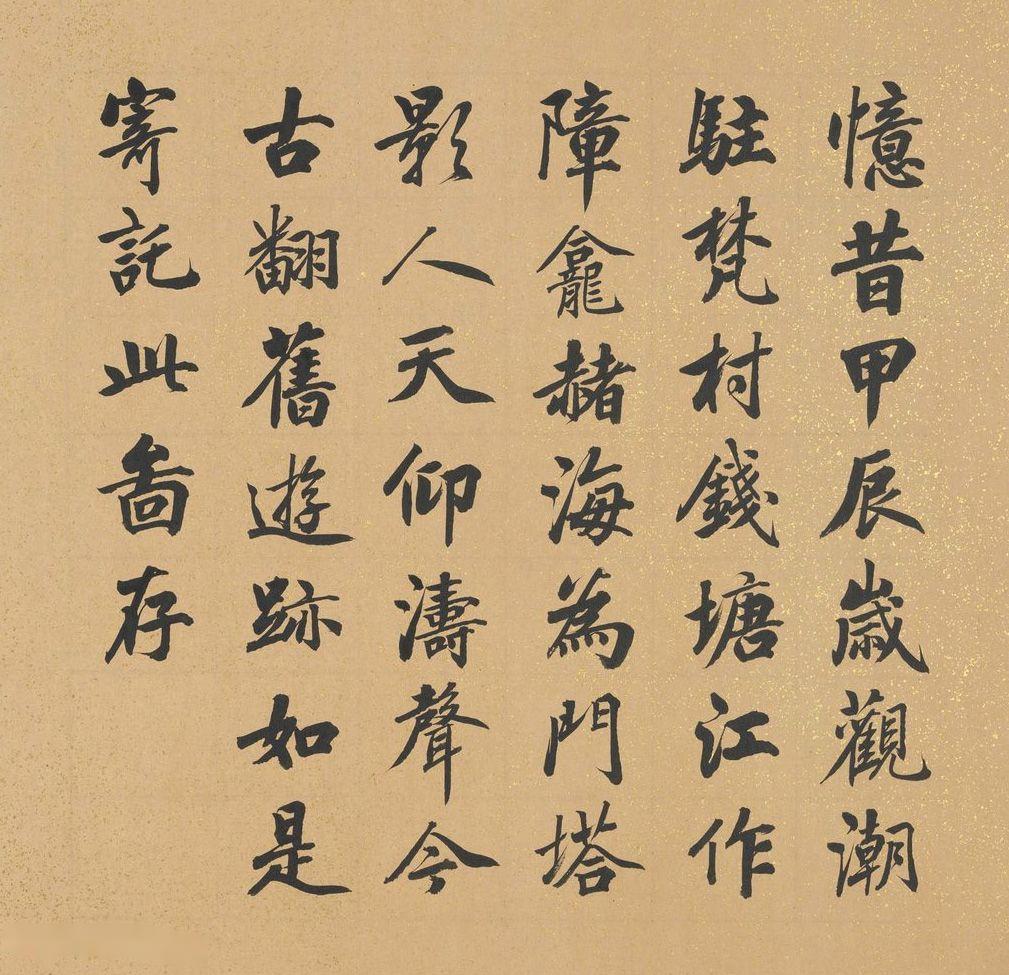 憶昔甲辰歳觀潮
駐梵村錢塘江作
障龕赭海為門塔
影人天仰濤聲今
古翻舊遊跡如是
寄託此啚存